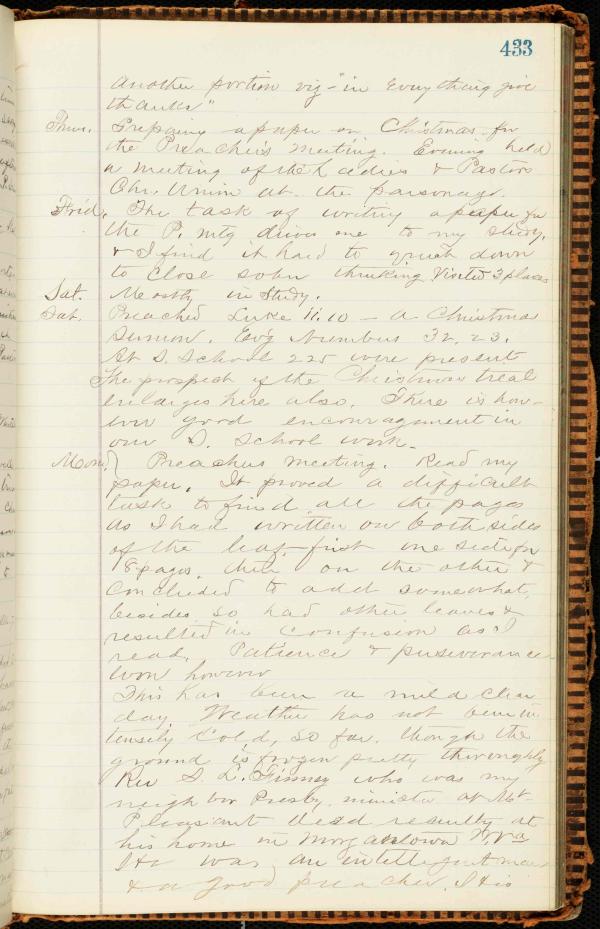 433
another portion viz- "in Everything give
thanks"
Thur. Preparing a paper on Christmas for
the Preachers meeting. Evening held
a meeting of the Ladies & Pastors
Chr. Union at the parsonage.
Frid. The task of writing a paper for
the P. mtg drives me to my study,
& I find it hard to get down
to close sober thinking. Visited 3 places
Sat. Mostly in Study.
Sat. Preached Luke 11.10 - a Christmas
sermon. Evg Numbers 32.23.
At S. School 225 were present
The prospect of the Christmas treat
enlarges here also. There is how-
ever good encouragement in
our S. School work.
Mon. Preachers meeting. Read my
paper. It proved a difficult
task to find all the pages
as I had written on both sides
of the leaf, first one side for
18 pages, then on the other &
concluded to add somewhat
besides so had other leaves &
resulted in confusion as I
read. Patience & perseverance
won however
This has been a mild clear
day. Weather has not been in
tensely cold, so far. though the
ground is frozen pretty thoroughly
Rev S. L. Finney who was my
neighbor Presby. minister at Mt
Pleasant died recently at
his home in Morgantown W, Va
He was an intelligent man
& a good preacher. His